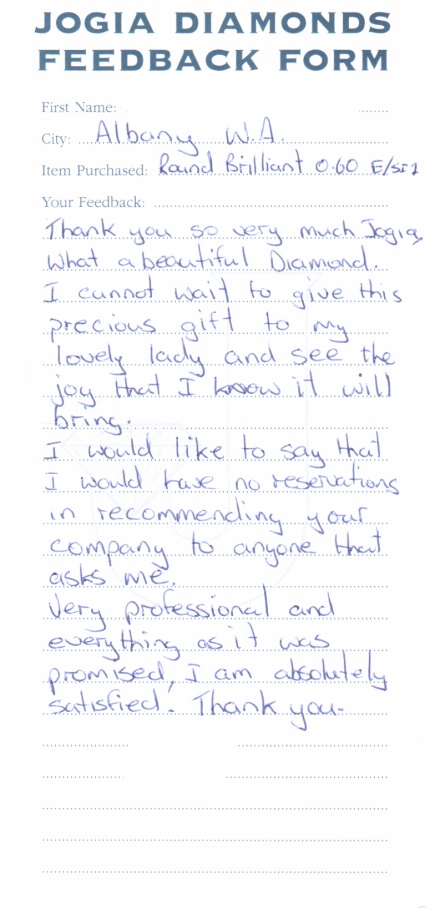 JOGIA DIAMONDS
FEEDBACK FORM
First Name:
City: Albany W.A.
Item Purchased: Round Brilliant 0.60 E/SI1
Your Feedback:
Thank you so very much Jogia,
What a beautiful Diamond.
I cannot wait to give this
precious gift to my
lovely lady and see the
joy that I know it will
bring.
I would like to say that
I would have no reservations
in recommending your
company to anyone that
asks me.
Very professional and
everything as it was
promised, I am absolutely
satisfied. Thank you.